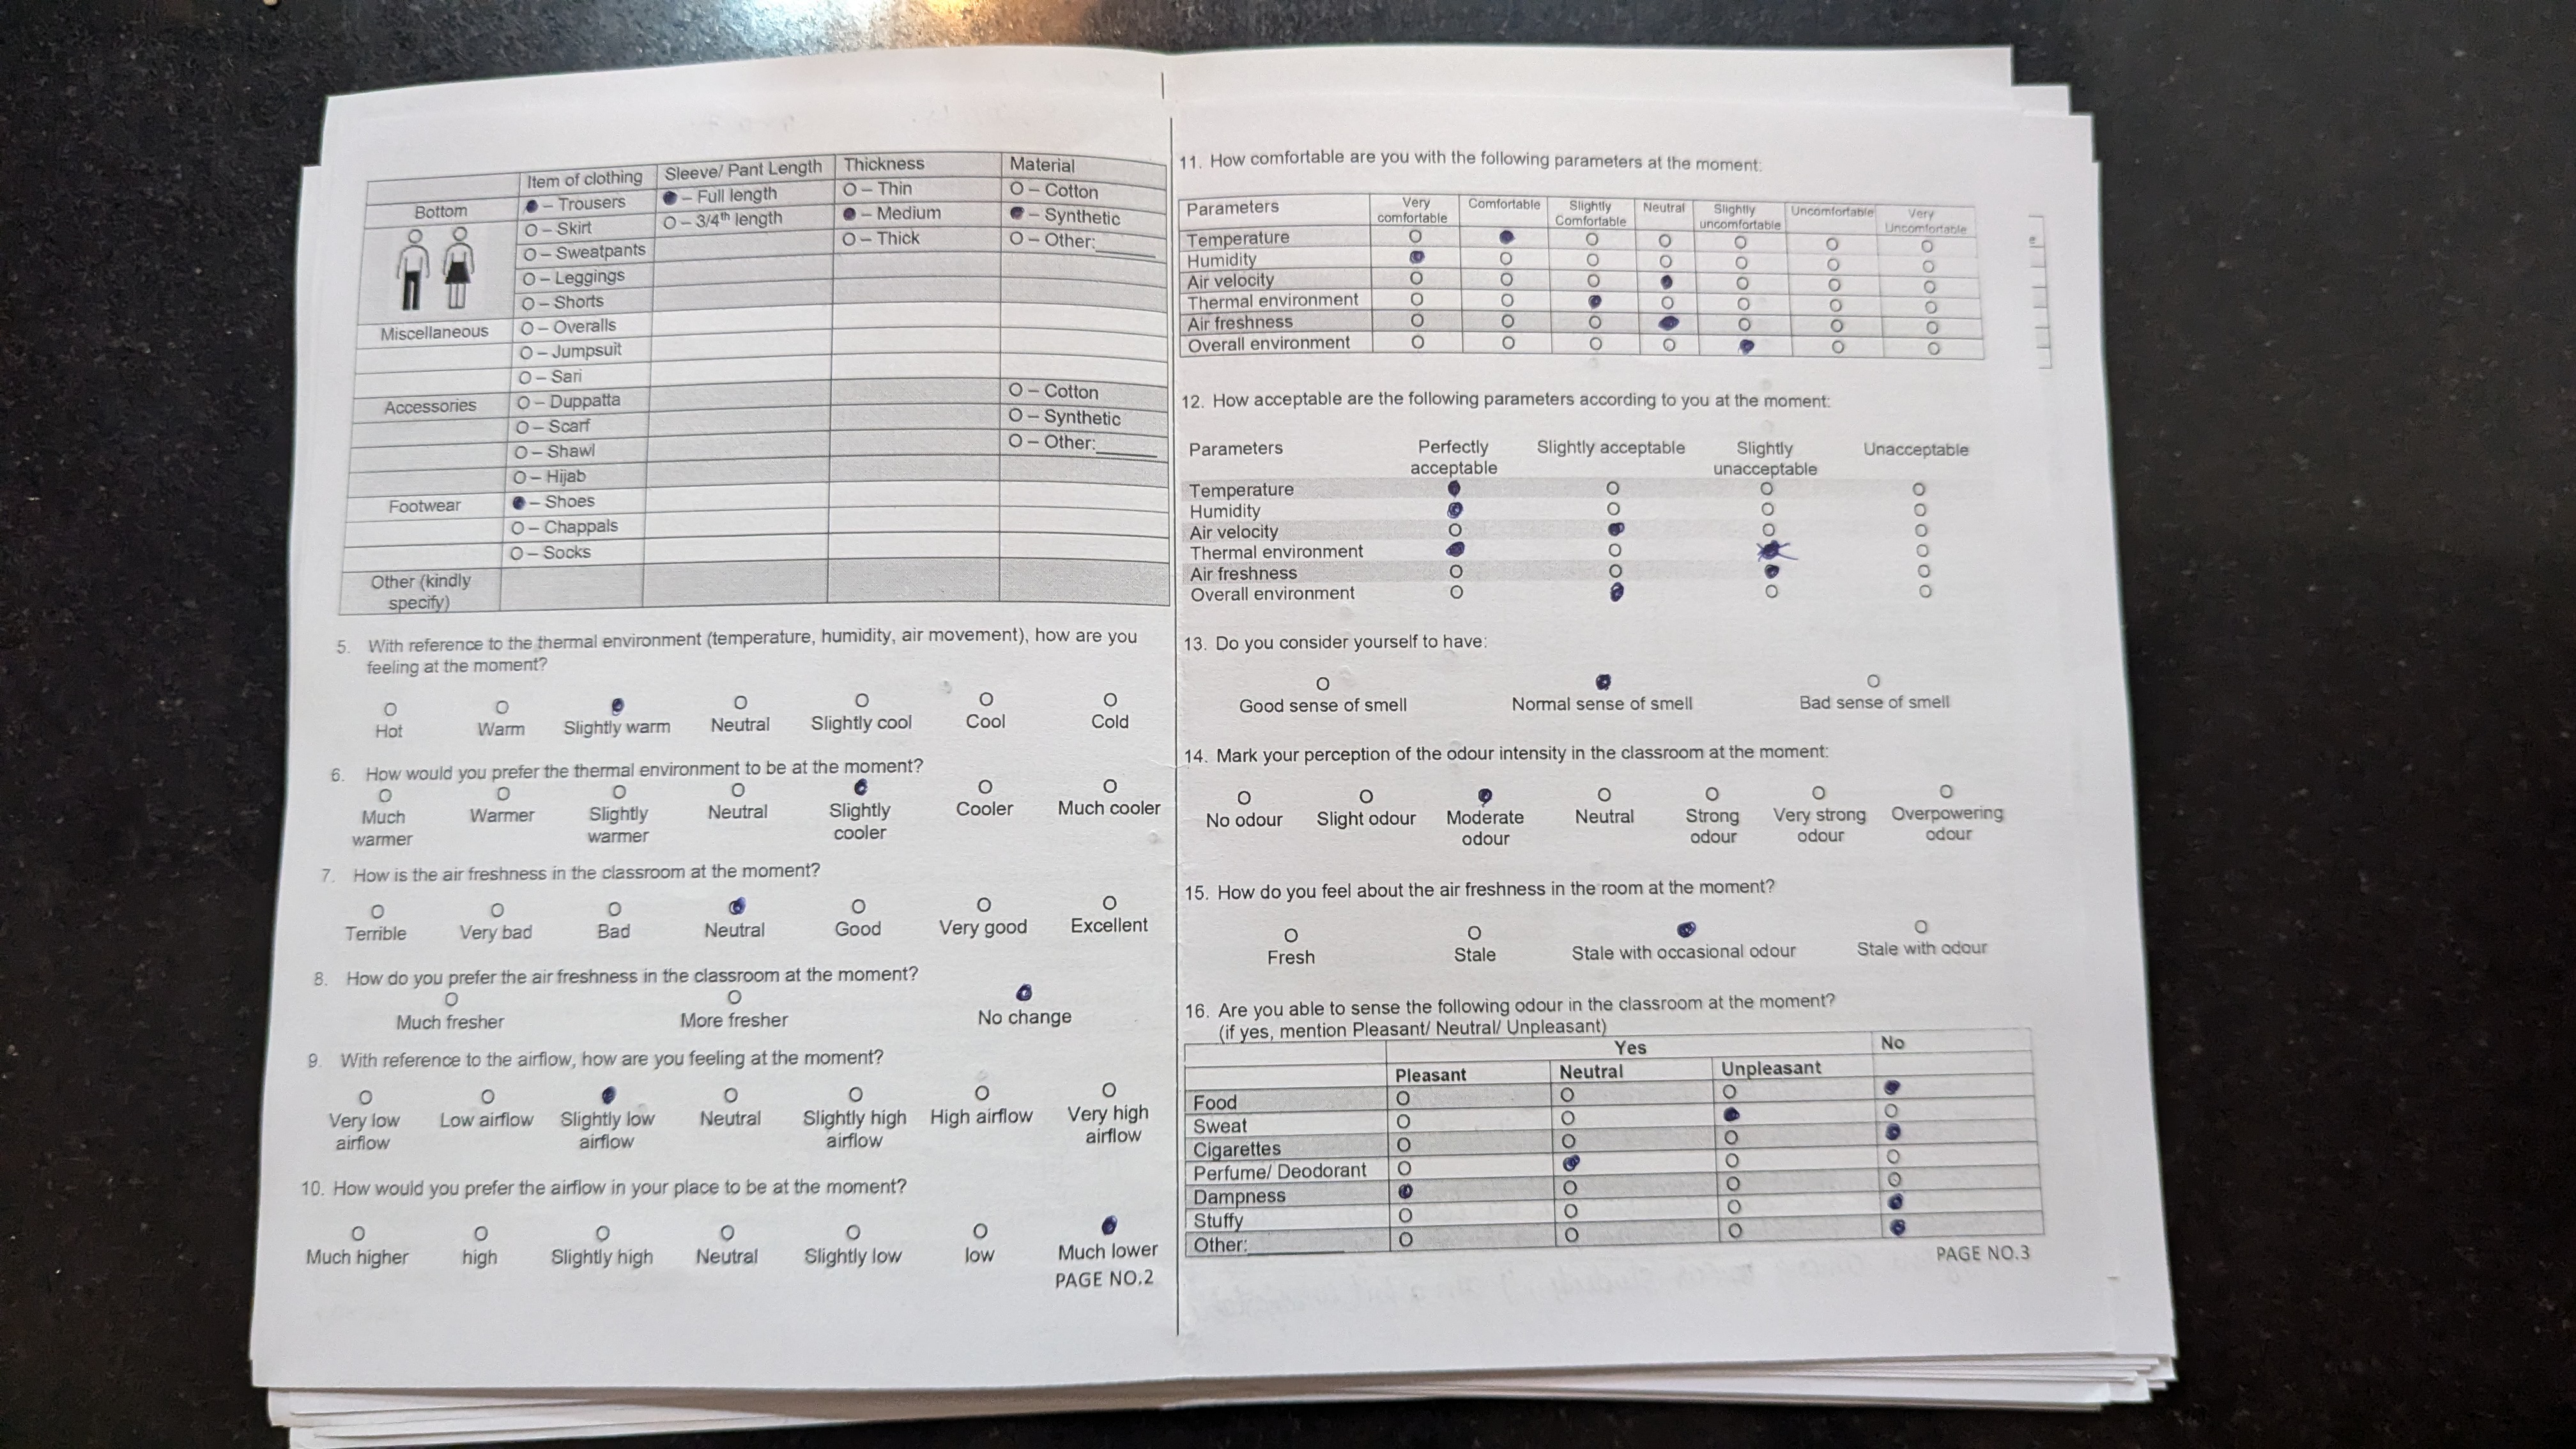 Item of clothing Sleeve/ Pant Length Thickness Material
Bottom
O – Trousers
O – Skirt
O – Sweatpants
O – Leggings
O – Shorts
O – Full length
O – 3/4th length
O – Thin
O – Medium
O – Thick
O – Cotton
O – Synthetic
O – Other:______
Miscellaneous
O – Overalls
O – Jumpsuit
O – Sari
Accessories
O – Duppatta
O – Scarf
O – Shawl
O – Hijab
O – Cotton
O – Synthetic
O – Other:______
Footwear
O – Shoes
O – Chappals
O – Socks
Other (kindly
specify)
5. With reference to the thermal environment (temperature, humidity, air movement), how are you
feeling at the moment?
Hot Warm Slightly warm Neutral Slightly cool Cool Cold
6. How would you prefer the thermal environment to be at the moment?
Much Warmer Slightly Neutral Slightly Cooler Much cooler
warmer warmer cooler
7. How is the air freshness in the classroom at the moment?
Terrible Very bad Bad Neutral Good Very good Excellent
8. How do you prefer the air freshness in the classroom at the moment?
Much fresher More fresher No change
9. With reference to the airflow, how are you feeling at the moment?
Very low Low airflow Slightly low Neutral Slightly high High airflow Very high
airflow airflow airflow airflow
10. How would you prefer the airflow in your place to be at the moment?
Much higher high Slightly high Neutral Slightly low low Much lower
PAGE NO.2
11. How comfortable are you with the following parameters at the moment:
Parameters Very Comfortable Slightly Neutral Slightly Uncomfortable Very
comfortable Comfortable uncomfortable Uncomfortable
Temperature
Humidity
Air velocity
Thermal environment
Air freshness
Overall environment
12. How acceptable are the following parameters according to you at the moment:
Parameters Perfectly Slightly acceptable Slightly Unacceptable
acceptable unacceptable
Temperature
Humidity
Air velocity
Thermal environment
Air freshness
Overall environment
13. Do you consider yourself to have:
Good sense of smell Normal sense of smell Bad sense of smell
14. Mark your perception of the odour intensity in the classroom at the moment:
No odour Slight odour Moderate Neutral Strong Very strong Overpowering
odour odour odour odour
15. How do you feel about the air freshness in the room at the moment?
Fresh Stale Stale with occasional odour Stale with odour
16. Are you able to sense the following odour in the classroom at the moment?
(if yes, mention Pleasant/ Neutral/ Unpleasant)
Yes No
Pleasant Neutral Unpleasant
Food
Sweat
Cigarettes
Perfume/ Deodorant
Dampness
Stuffy
Other:__________
PAGE NO.3